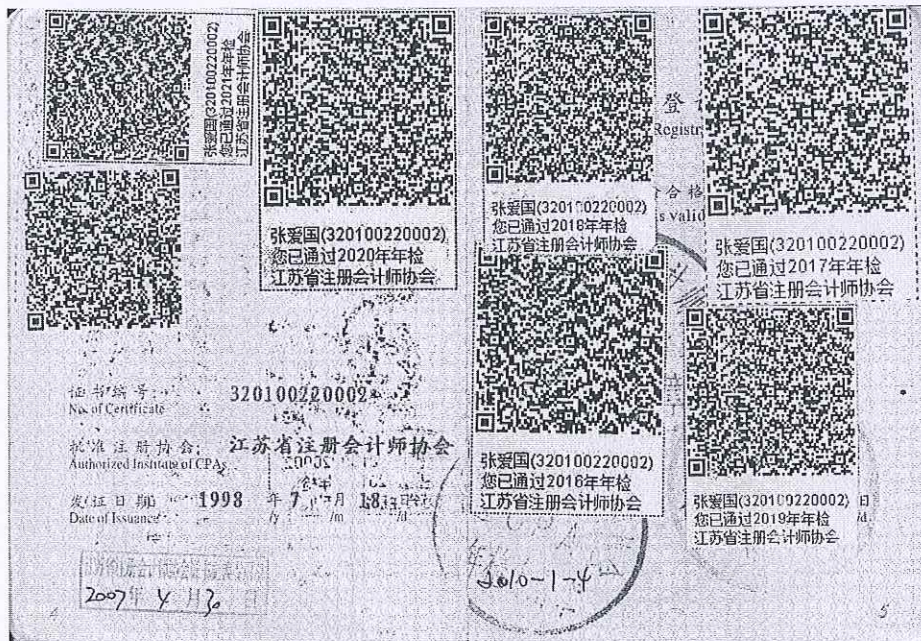 张爱国(320100220002)
您已通过2021年年检
江苏省注册会计师协会
张爱国(320100220002)
您已通过2020年年检
江苏省注册会计师协会
张爱国(320100220002)
您已通过2018年年检
江苏省注册会计师协会
登
Registr
合格
s valid
张爱国(320100220002)
您已通过2017年年检
江苏省注册会计师协会
张爱国(320100220002)
您已通过2016年年检
江苏省注册会计师协会
张爱国(320100220002)
您已通过2019年年检
江苏省注册会计师协会
日
/d
证书编号:
No. of Certificate
320100220002
批准注册协会:
Authorized Institute of CPAs
江苏省注册会计师协会
发证日期:
Date of Issuance
1998 年 7 月 18 日
/y /m /d
2007年 4月 30日
2010-1-4
4
5